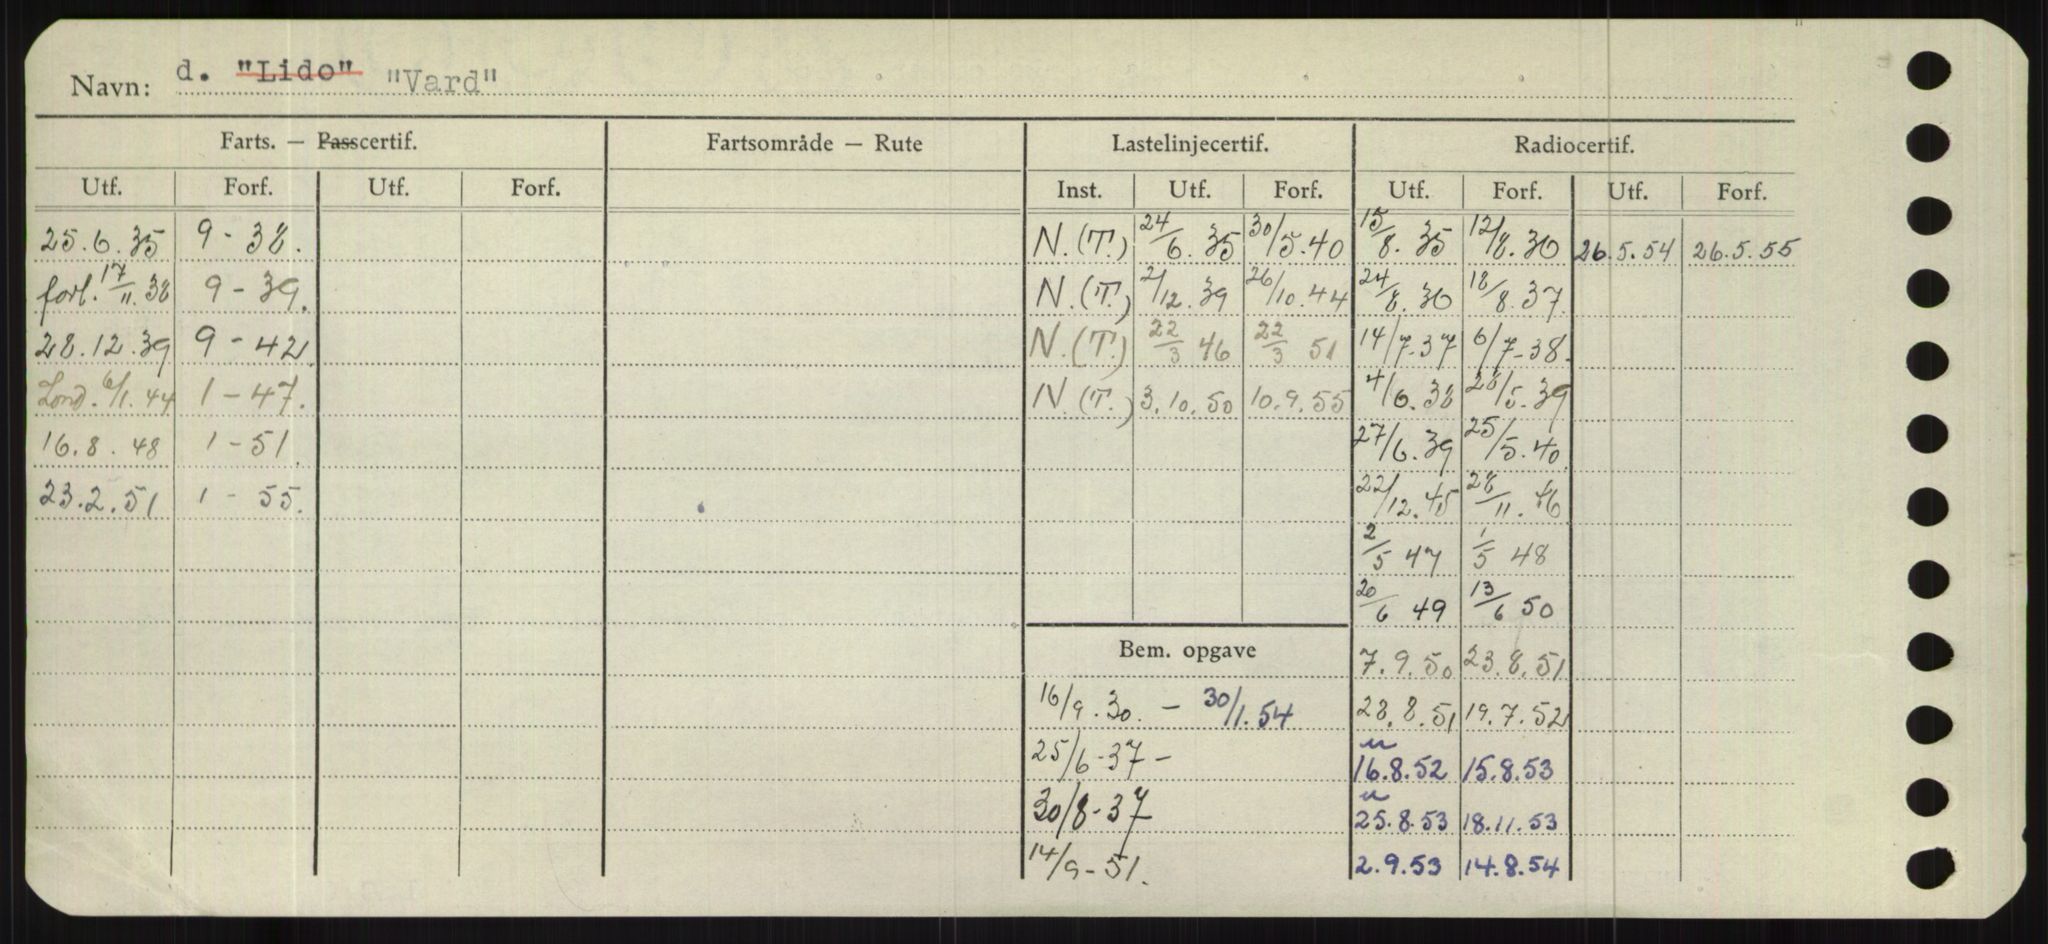 Navn: d. "Lido" "Vard"
Farts. — Passcertif. Fartsområde — Rute Lastelinjecertif. Radiocertif.
Utf. Forf. Utf. Forf. Inst. Utf. Forf. Utf. Forf. Utf. Forf.
25.6.35 9-38. N.(T.) 24/6.35 30/5.40 15/8.35 12/8.36 26.5.54 26.5.55
forl. 17/11.38 9-39. N.(T.) 2/12.39 26/10.44 24/8.36 18/8.37.
28.12.39 9-42 N.(T.) 22/3 46 22/3 51 14/7-37 6/7-38.
Lond. 6/1.44 1-47. N.(T.) 3.10.50 10.9.55 4/6.38 28/5.39
16.8.48 1-51. 27/6.39 25/5.40
23.2.51 1-55. 22/12.45 28/11.46
2/5 47 1/5 48
20/6 49 13/6 50
Bem. opgave 7.9.50 23.8.51
16/9.30. - 30/1.54 28.8.51 19.7.52
25/6-37- 16.8.52 15.8.53
30/8-37 25.8.53 18.11.53
14/9-51. 2.9.53 14.8.54